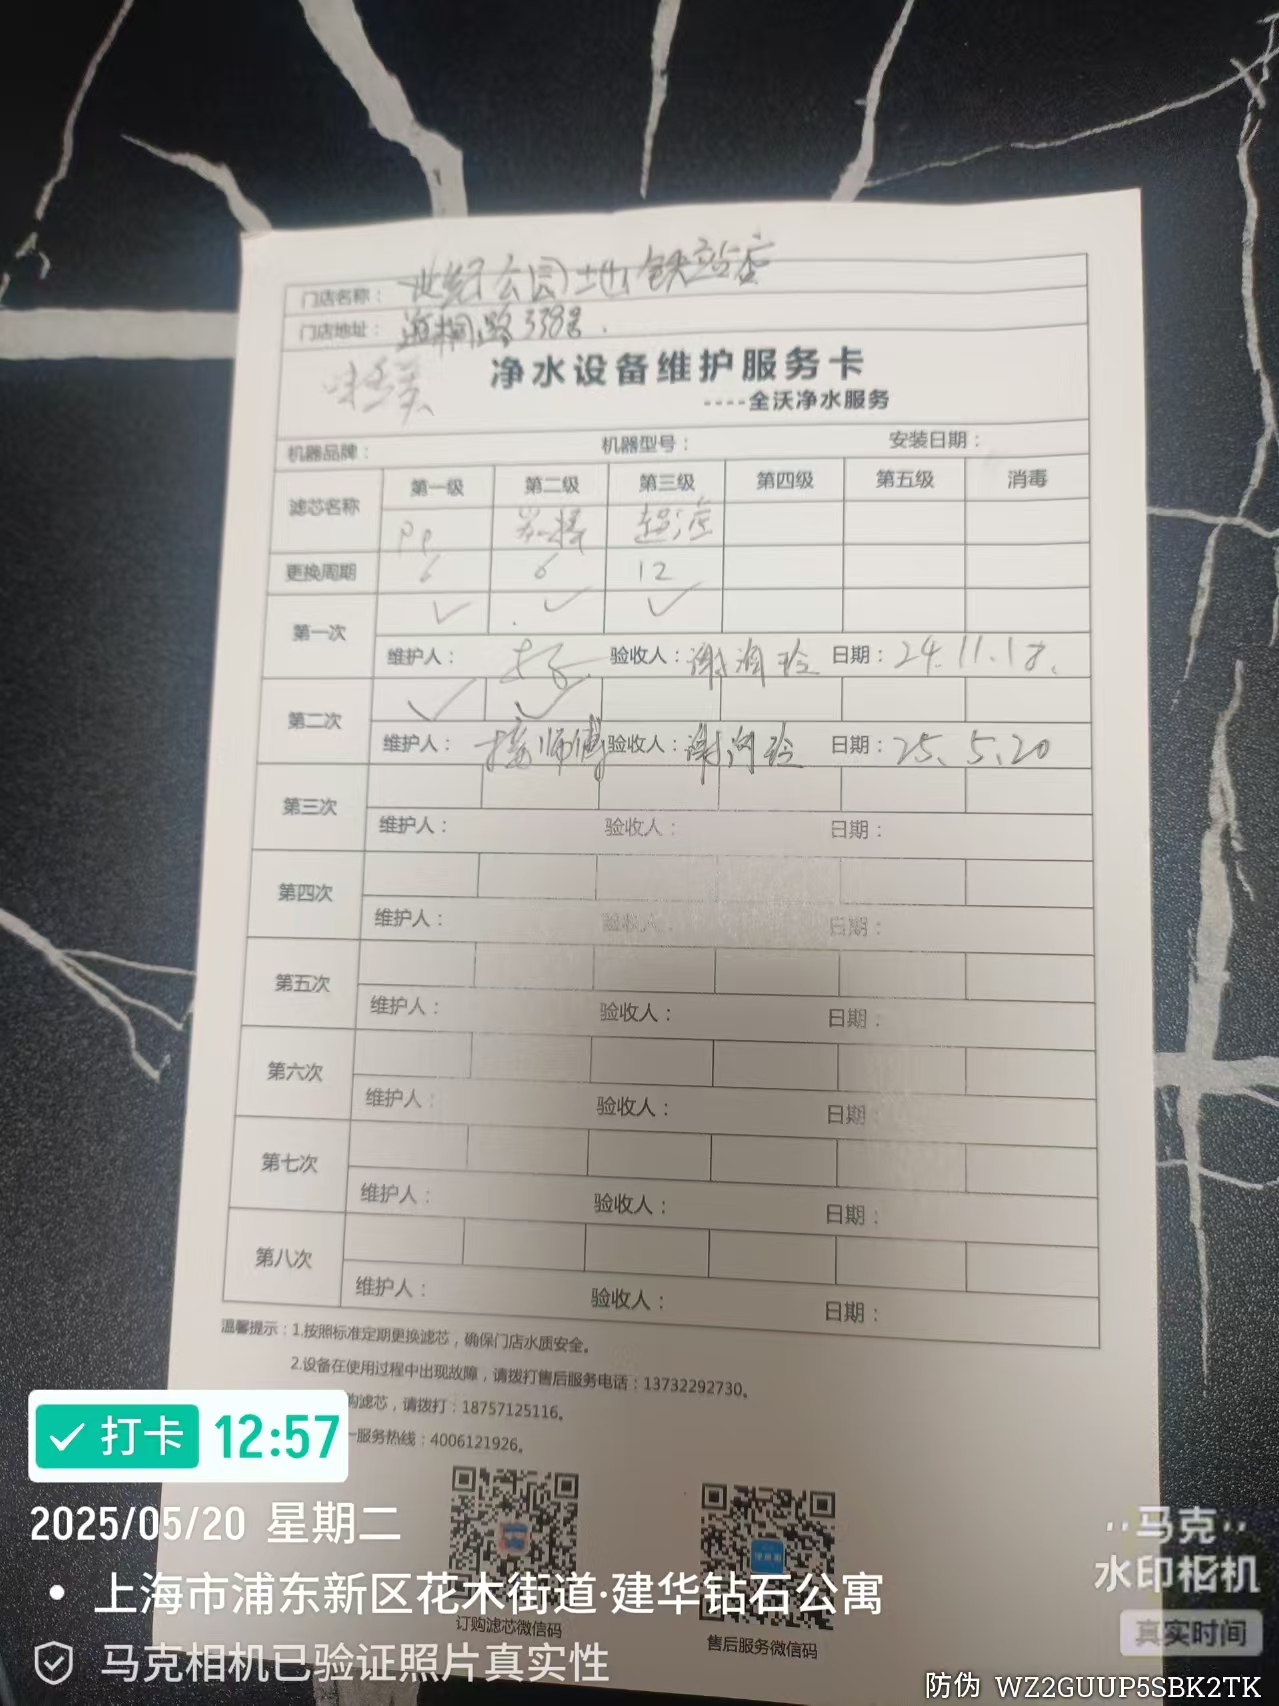 门店名称： 世纪公园地铁站店
门店地址： 338号.
净水设备维护服务卡
----全沃净水服务
机器品牌： 机器型号： 安装日期：
滤芯名称 第一级 第二级 第三级 第四级 第五级 消毒
PP 超滤
更换周期 6 6 12
第一次 ✓ ✓ ✓
维护人： 验收人：谢 玲 日期：24.11.18.
第二次 ✓ ✓
维护人： 师傅 验收人：谢 玲 日期：25.5.20
第三次
维护人： 验收人： 日期：
第四次
维护人： 验收人： 日期：
第五次
维护人： 验收人： 日期：
第六次
维护人： 验收人： 日期：
第七次
维护人： 验收人： 日期：
第八次
维护人： 验收人： 日期：
温馨提示：1.按照标准定期更换滤芯，确保门店水质安全。
2.设备在使用过程中出现故障，请拨打售后服务电话：13732292730。
购滤芯，请拨打：18757125116。
一服务热线：4006121926。
订购滤芯微信码
售后服务微信码
打卡 12:57
2025/05/20 星期二
上海市浦东新区花木街道·建华钻石公寓
马克相机已验证照片真实性
马克
水印相机
真实时间
防伪 WZ2GUUP5SBK2TK